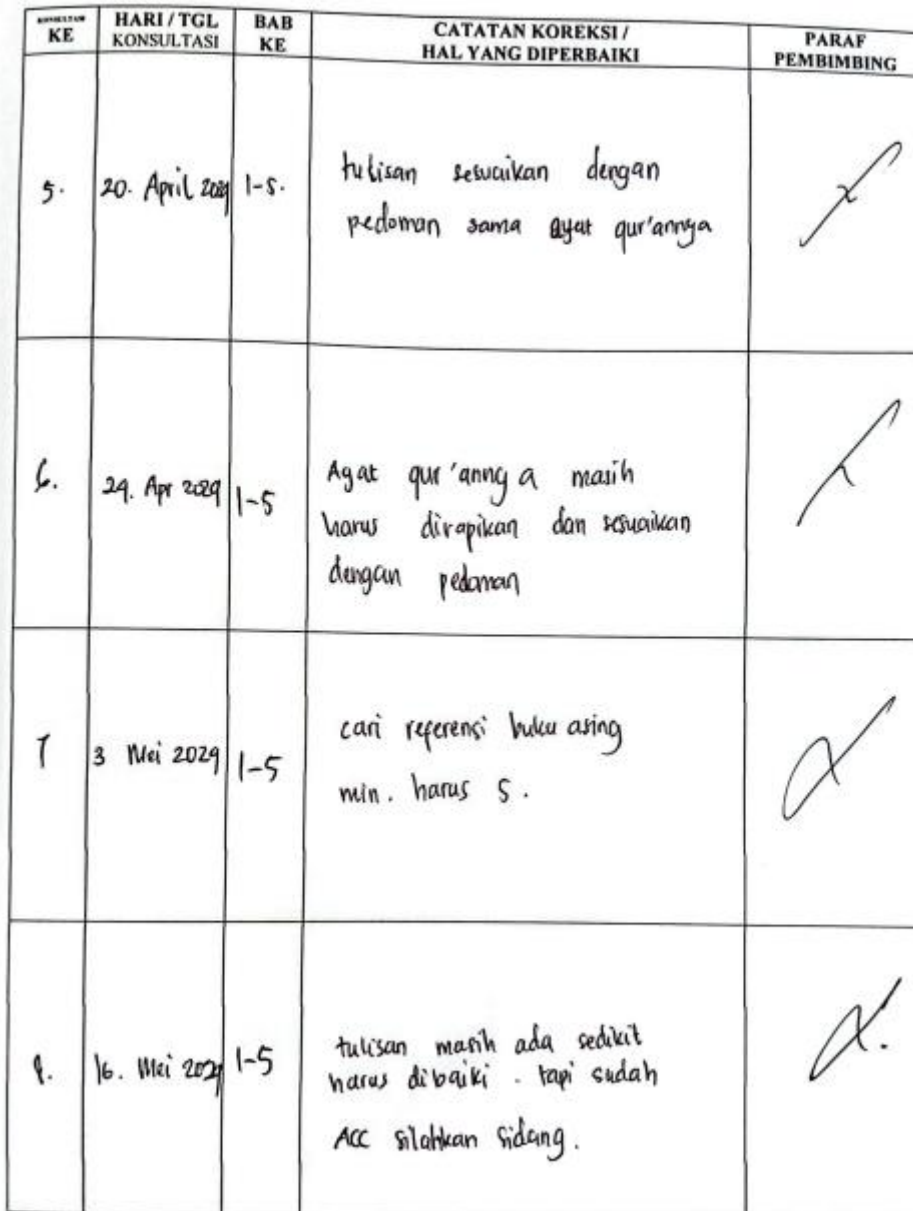 KONSULTASI KE
HARI / TGL KONSULTASI
BAB KE
CATATAN KOREKSI / HAL YANG DIPERBAIKI
PARAF PEMBIMBING
5.
20. April 2029
1-5.
tulisan sesuaikan dengan
pedoman sama ayat qur'annya
6.
24. Apr 2029
1-5
Ayat qur'annya masih
harus dirapikan dan sesuaikan
dengan pedoman
7
3 Mei 2029
1-5
cari referensi buku asing
min. harus 5.
8.
16. Mei 2029
1-5
tulisan masih ada sedikit
harus dibaiki. tapi sudah
ACC silahkan sidang.